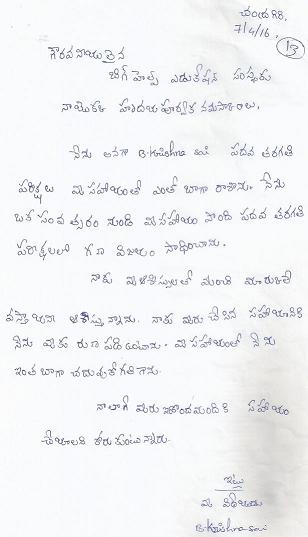 చంద్ర RB.
7/4/16.
13
గౌరవనీయులైన
బిగ్ హెల్ప్ ఎడుకేషన్ సంస్థకు
నా యొక్క హృదయపూర్వక నమస్కారాలు.
నేను అనగా B.Krishna sai పదవ తరగతి
పరీక్షలు మీ సహాయంతో ఎంతో బాగా రాశాను. నేను
ఒక సంవత్సరం నుండి మీ సహాయం పొంది పదవ తరగతి
పరీక్షలలో విజయం సాధించాను.
నాకు మీ ఆశీస్సులతో మంచి మార్కులే
వస్తాయని ఆశిస్తున్నాను. నాకు మీరు చేసిన సహాయానికి
నేను మీకు రుణపడి ఉంటాను. మీ సహాయంతో నేను
ఇంత బాగా చదువుకోగలిగాను.
నాలాగే మీరు ఇంకొంతమందికి సహాయం
చేయాలని కోరుకుంటున్నాను.
ఇట్లు
మీ విధేయుడు
B.Krishna sai